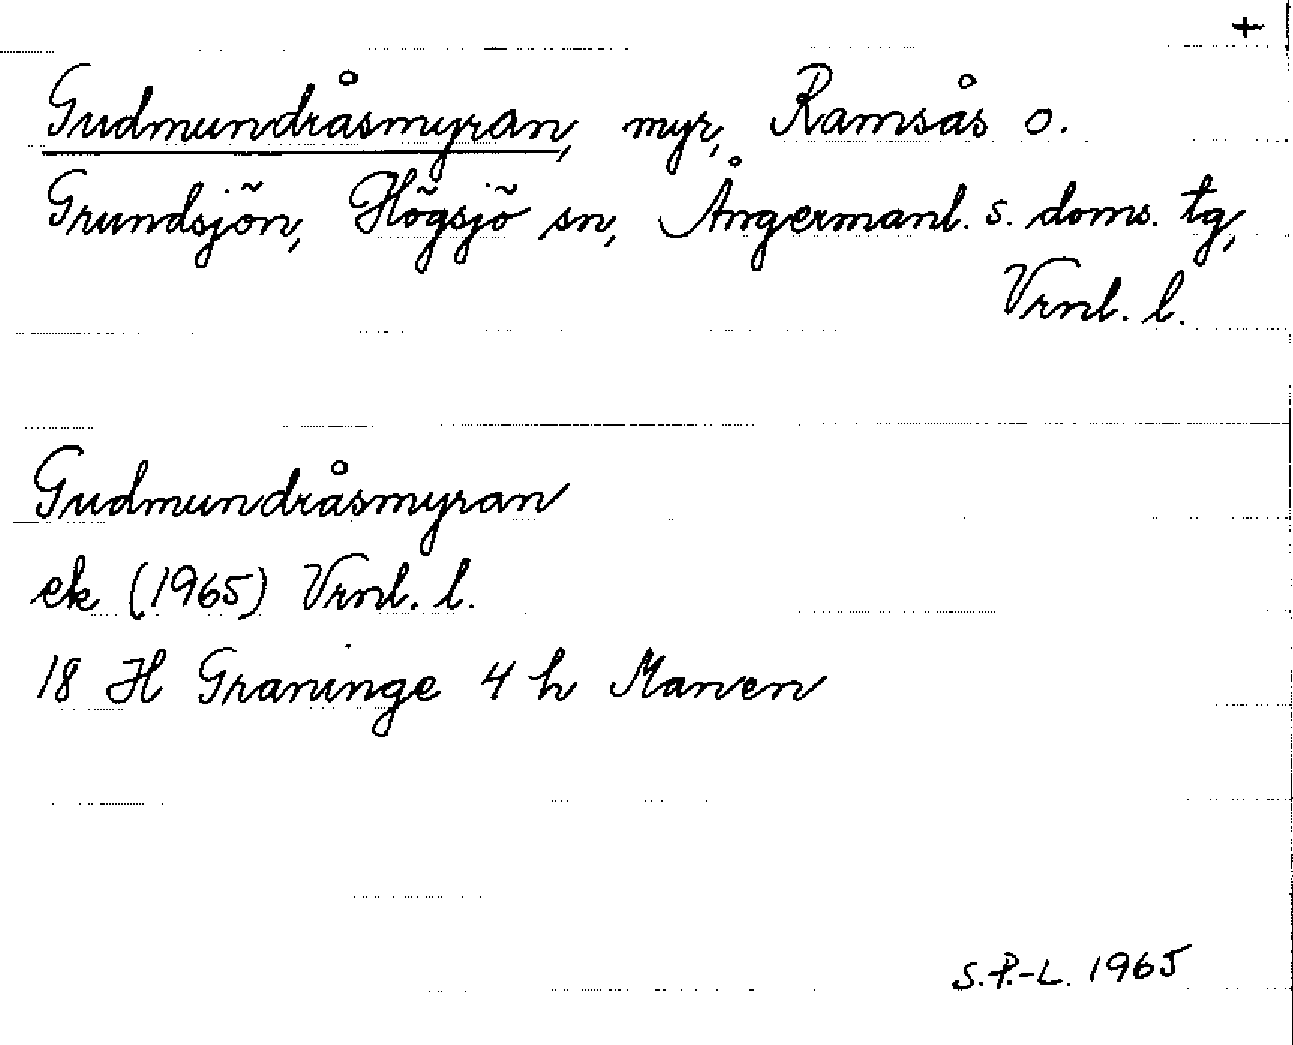 +
Gudmundråsmyran, myr, Ramsås o.
Grundsjön, Högsjö sn, Ångermanl. s. doms. tg,
Vrnl. l.
Gudmundråsmyran
ek (1965) Vrnl. l.
18 H Graninge 4 h Manen
S.P.-L. 1965